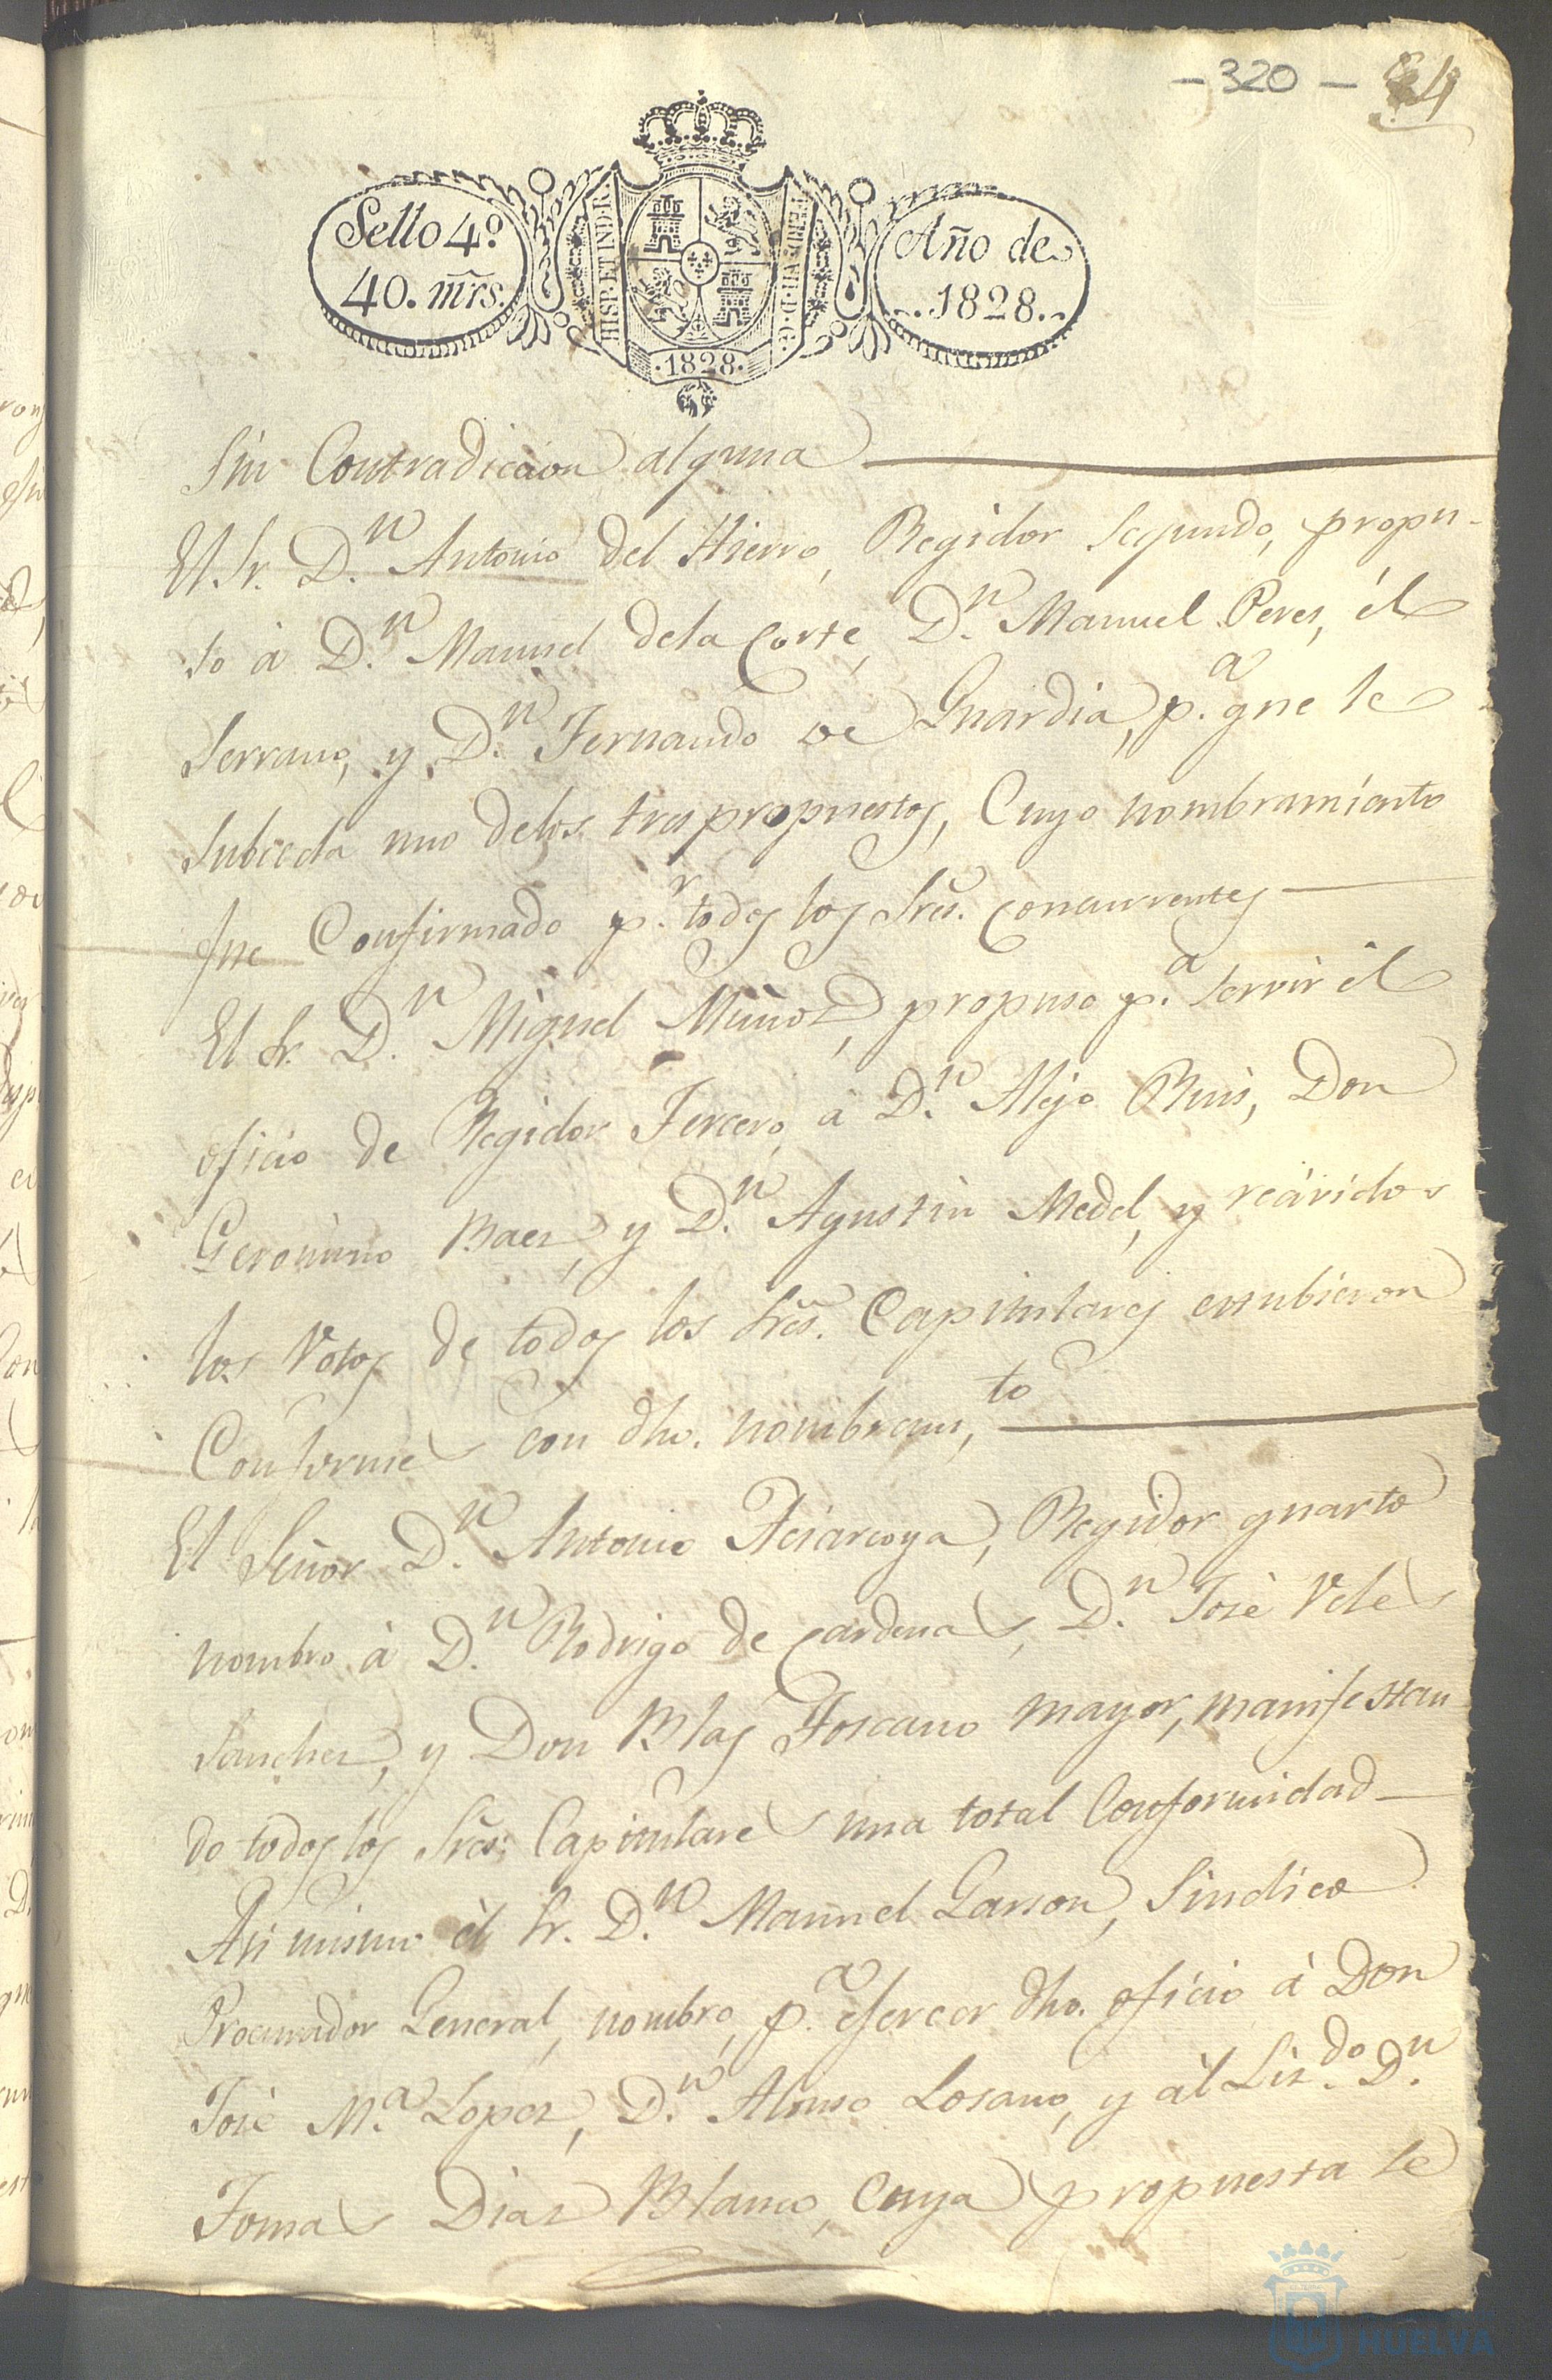 - 320 - 84
Sello 4º
40. mrs.
HISP. ET IND. R.
FERD. VII. D. G.
·1828·
Año de
1828.
Sin Contradiccion alguna
El Sr. D.n Antonio del Hierro, Regidor Segundo, propu-
so à D.n Manuel dela Corte, D.n Manuel Peres, él
Serrano, y D.n Fernando de Guardia, p.a que le
Subceda uno delos tres propuestos, Cuyo nombramiento
fue Confirmado p.r todos los Sres. concurrentes
El Sr. D.n Miguel Muñoz, propuso p.a servir él
oficio de Regidor Tercero, à D.n Alejo Ruis, Don
Geronimo Baez, y D.n Agustin Medel, y recividos
los Votos de todos los Sres. Capitulares estubieron
Conformes con dho. nombram,to
El Señor D.n Antonio , Regidor quarto
nombro à D.n Rodrigo de Cardenas, D.n José Veles
Sanchez, y Don Blas Toscano mayor, manifestan
do todos los Sres. Capitulares una total Conformidad
Asi mismo él Sr. D.n Manuel Garson, Sindico
Procurador General, nombro, p.a ejercer dho. oficio à Don
José M.a Lopez, D.n Alonso Losano, y àl Liz.do D.n
Tomas Diaz Blanco, Cuya propuesta se
HUELVA